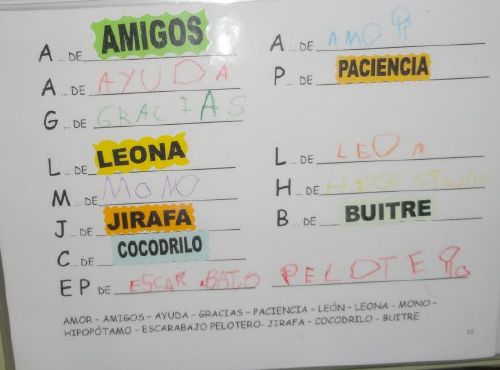 A ... DE AMIGOS A ... DE AMOR
A ... DE AYUDA P ... DE PACIENCIA
G ... DE GRACIAS
L ... DE LEONA L ... DE LEON
M ... DE MONO H ... DE HIPOPOTAMO
J ... DE JIRAFA B ... DE BUITRE
C ... DE COCODRILO
E P DE ESCARABAJO PELOTERO
AMOR - AMIGOS - AYUDA - GRACIAS - PACIENCIA - LEÓN - LEONA - MONO -
HIPOPÓTAMO - ESCARABAJO PELOTERO- JIRAFA - COCODRILO - BUITRE